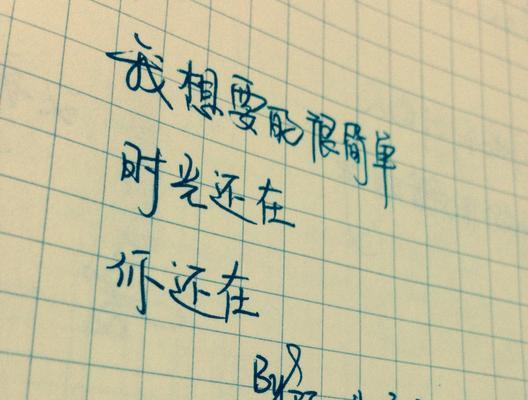 我想要的很简单
时光还在
你还在
By